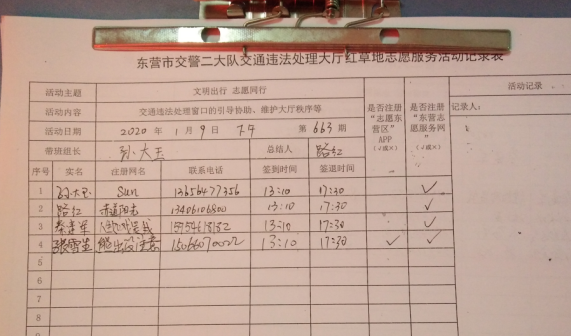 东营市交警二大队交通违法处理大厅红草地志愿服务活动记录表
活动主题 文明出行 志愿同行
活动内容 交通违法处理窗口的引导协助、维护大厅秩序等
活动日期 2020 年 1 月 9 日 第 663 期
带班组长 孙大玉 总结人 路红
是否注册“志愿东营区”APP（√或×）
是否注册“东营志愿服务网”（√或×）
活动记录
记录人：
序号 实名 注册网名 联系电话 签到时间 签退时间
1 孙大玉 Sun 13656477356 13:10 17:30 √
2 路红 13406106800 13:10 17:30 √
3 17:30 √
4 张雪莲 熊出没注意 13:10 17:30 √ √
5
6
7
8